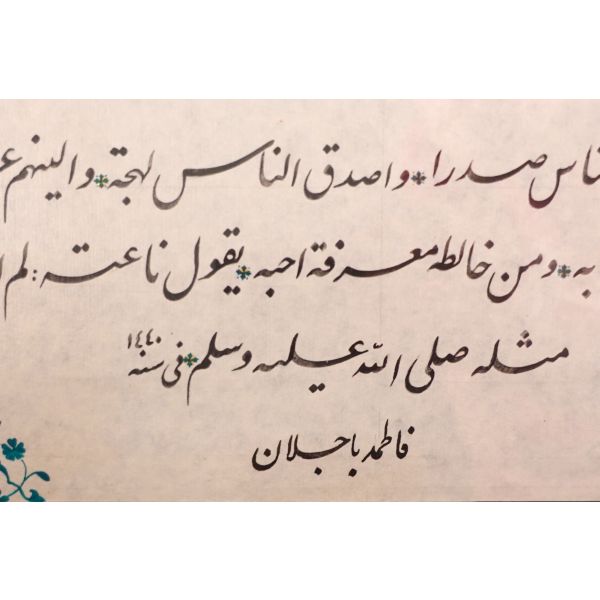 ناس صدرا واصدق الناس لهجة والينهم ع
به ومن خالطه معرفة احبه يقول ناعته : لم ا
مثله صلى الله عليه وسلم فى سنه ١٤٤٠
فاطمه باجلان